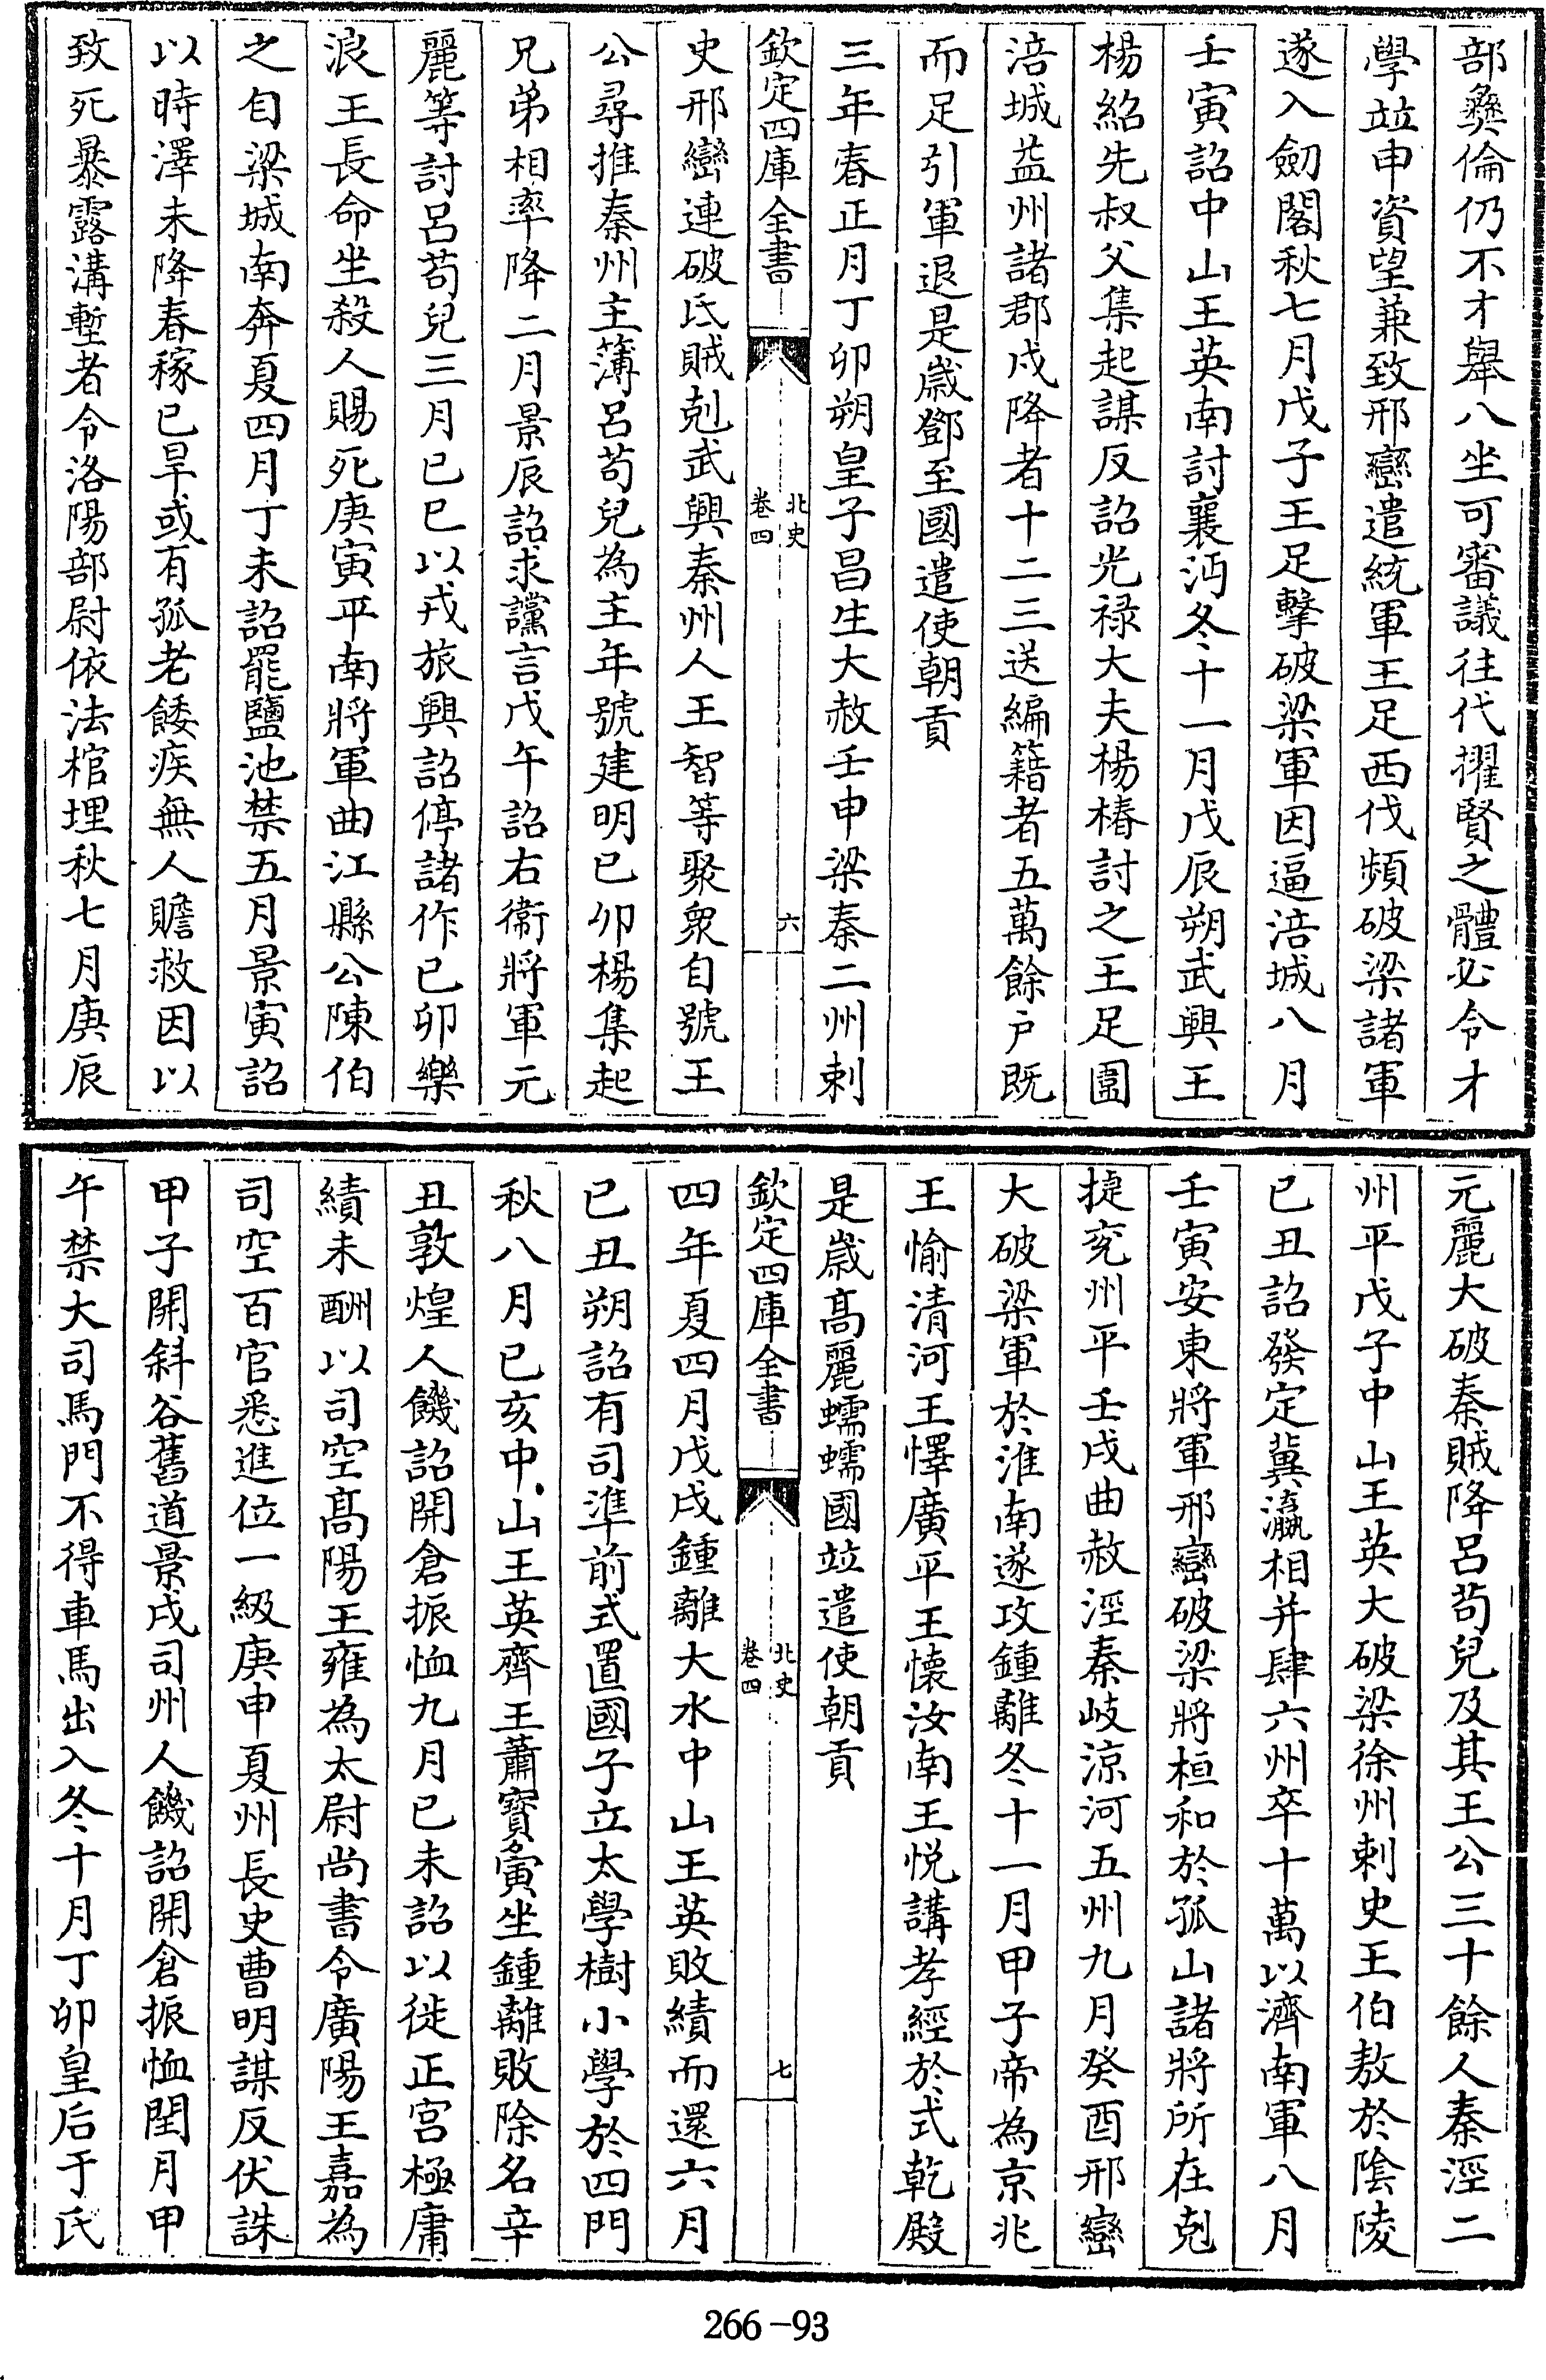 部彜倫仍不才舉八坐可審議往代擢賢之體必令才
學竝申資望兼致邢巒遣統軍王足西伐頻破梁諸軍
遂入劒閣秋七月戊子王足擊破梁軍因逼涪城八月
壬寅詔中山王英南討襄沔冬十一月戊辰朔武興王
楊紹先叔父集起謀反詔光禄大夫楊椿討之王足圍
涪城益州諸郡戍降者十二三送編籍者五萬餘户既
而足引軍退是歲鄧至國遣使朝貢
三年春正月丁卯朔皇子昌生大赦壬申梁秦二州刺
欽定四庫全書
北史
卷四
六
史邢巒連破氐賊剋武興秦州人王智等聚衆自號王
公尋推秦州主簿呂苟兒為主年號建明已卯楊集起
兄弟相率降二月景辰詔求讜言戊午詔右衞將軍元
麗等討呂苟兒三月已巳以戎旅興詔停諸作已卯樂
浪王長命坐殺人賜死庚寅平南將軍曲江縣公陳伯
之自梁城南奔夏四月丁未詔罷鹽池禁五月景寅詔
以時澤未降春稼已旱或有孤老餧疾無人贍救因以
致死暴露溝塹者令洛陽部尉依法棺埋秋七月庚辰
元麗大破秦賊降呂苟兒及其王公三十餘人秦涇二
州平戊子中山王英大破梁徐州刺史王伯敖於陰陵
已丑詔發定冀瀛相并肆六州卒十萬以濟南軍八月
壬寅安東將軍邢巒破梁將桓和於孤山諸將所在剋
捷兖州平壬戌曲赦涇秦岐涼河五州九月癸酉邢巒
大破梁軍於淮南遂攻鍾離冬十一月甲子帝為京兆
王愉清河王懌廣平王懷汝南王悅講孝經於式乾殿
是歲髙麗蠕蠕國竝遣使朝貢
欽定四庫全書
北史
卷四
七
四年夏四月戊戌鍾離大水中山王英敗績而還六月
已丑朔詔有司準前式置國子立太學樹小學於四門
秋八月已亥中山王英齊王蕭寳寅坐鍾離敗除名辛
丑敦煌人饑詔開倉振恤九月已未詔以徙正宫極庸
績未酬以司空髙陽王雍為太尉尚書令廣陽王嘉為
司空百官悉進位一級庚申夏州長史曹明謀反伏誅
甲子開斜谷舊道景戌司州人饑詔開倉振恤閏月甲
午禁大司馬門不得車馬出入冬十月丁卯皇后于氏
266-93